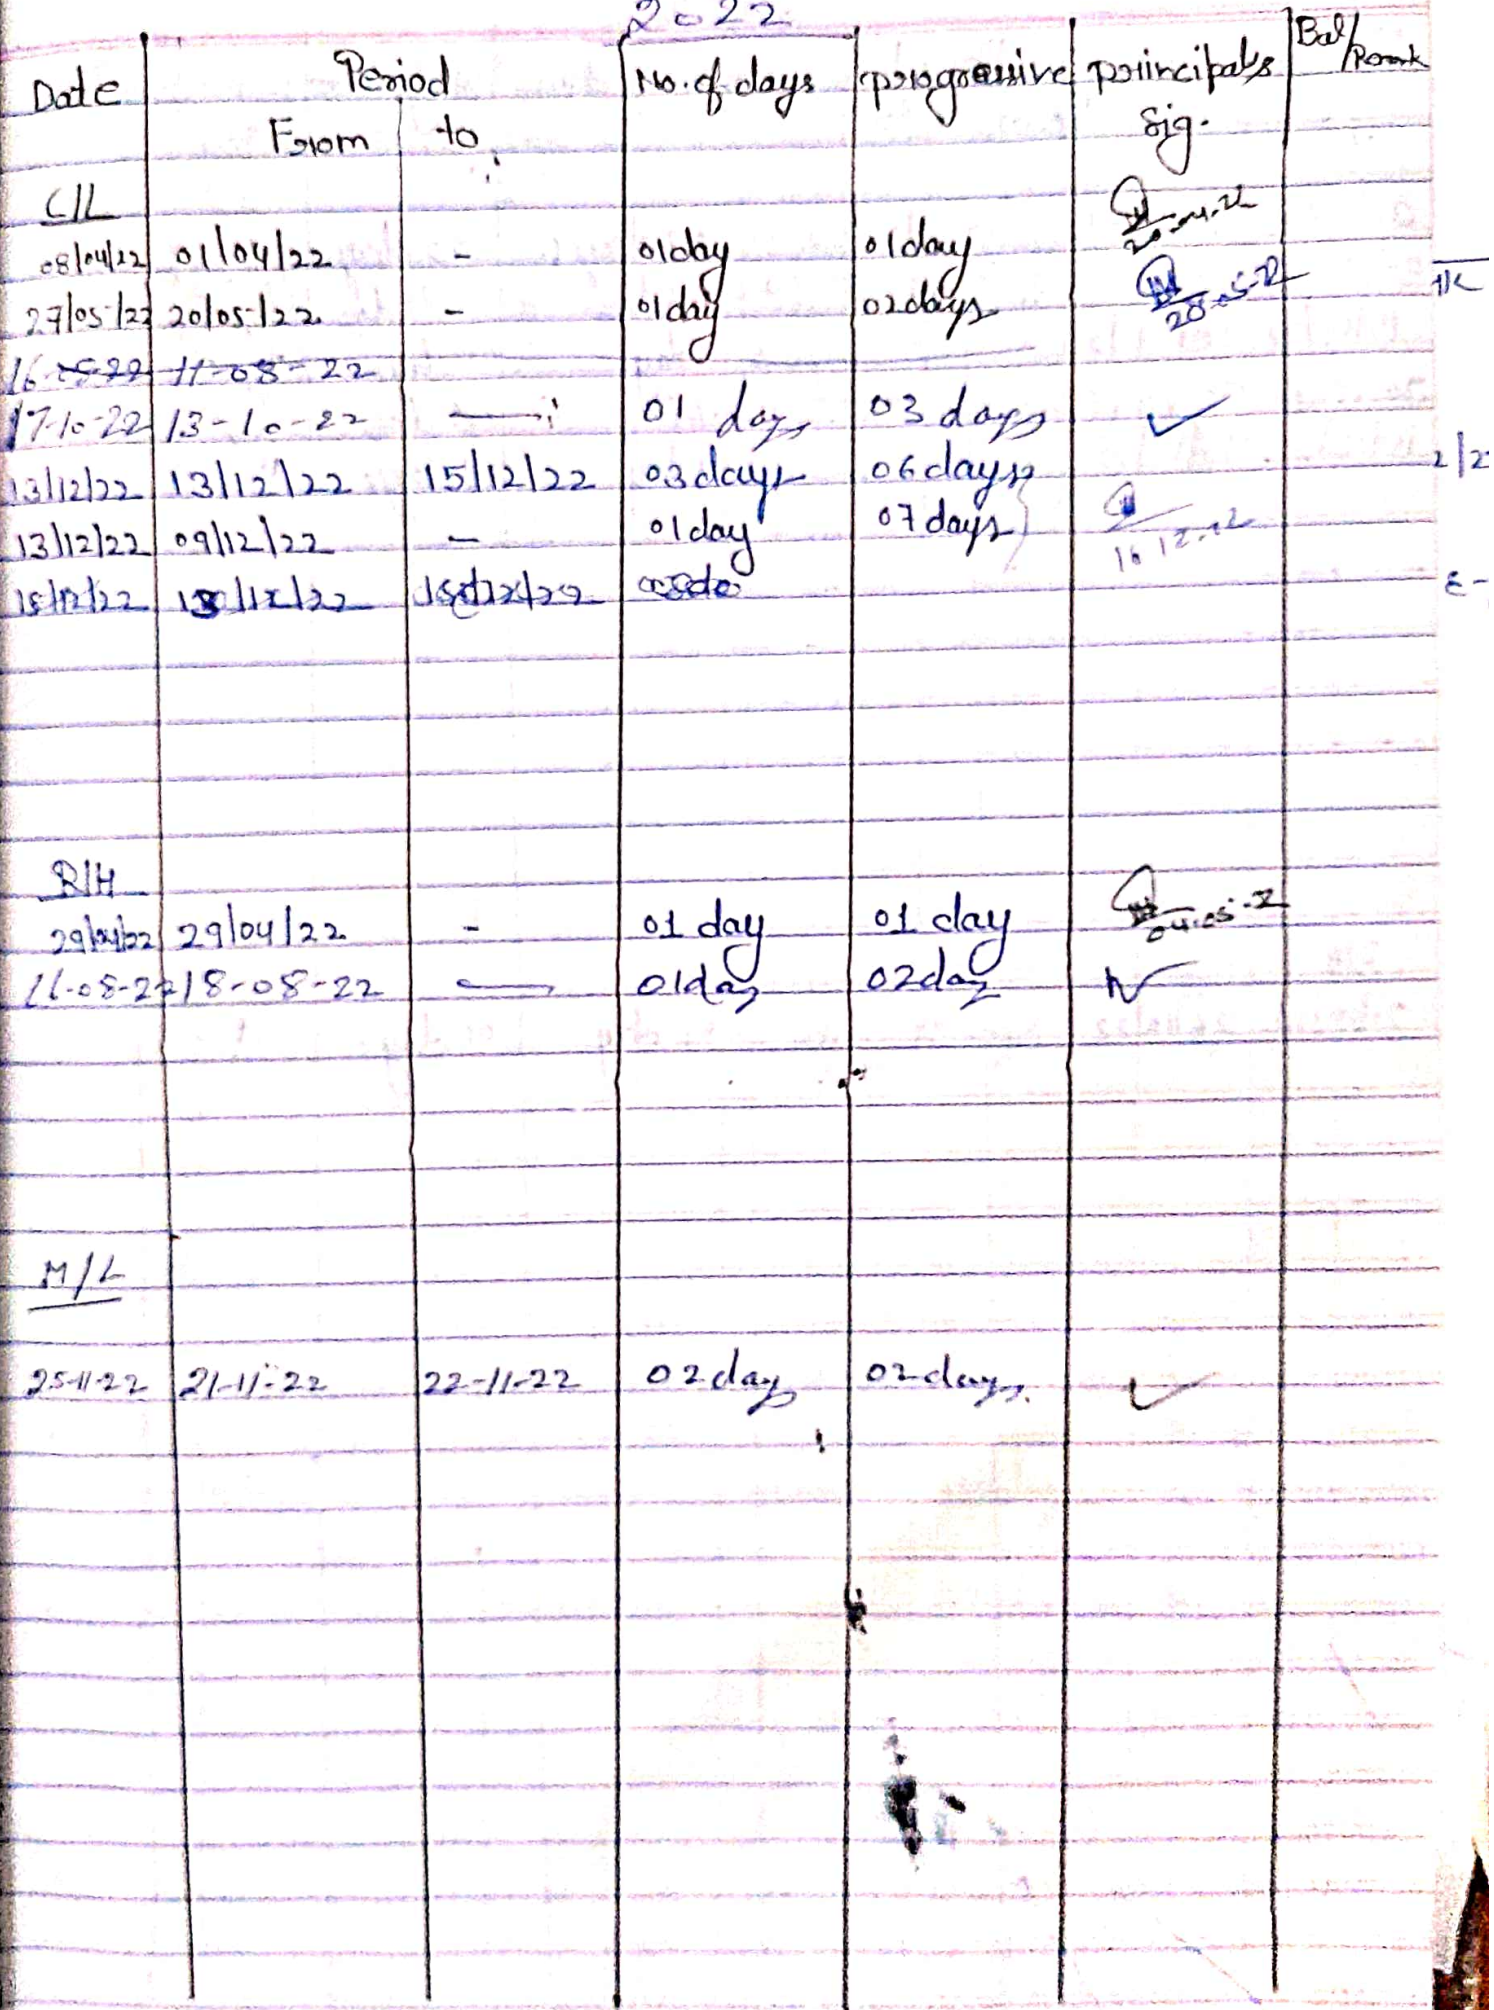 2022
Date Period No. of days progressive principal's Bal/Remark
From to sig.
C/L
20-04-22
08/04/22 01/04/22 - 01day 01day
27/05/22 20/05/22 - 01day 02days 28-05-22
16-08-22 11-08-22
17-10-22 13-10-22 — 01 days 03 days ✓
13/12/22 13/12/22 15/12/22 03days 06days
13/12/22 09/12/22 - 01day 07days 16.12.22
15/12/22
R/H
29/04/22 29/04/22 - 01 day 01 day 04.05-22
16-08-22 18-08-22 — 01day 02day
M/L
25-11-22 21-11-22 22-11-22 02days 02days. ✓